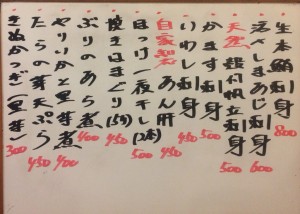 生本鮪刺身 800
活〆しまあじ刺身 600
天然 殻付帆立刺身 500
かます刺身 500
いわし刺身 450
自家製 あん肝 450
ほっけ一夜干し(2本) 500
焼きはまぐり(5ヶ) 450
ぶりのあら煮 400
やりいかと里芋煮 400
たらの芽天ぷら 450
きぬかつぎ(里芋) 300